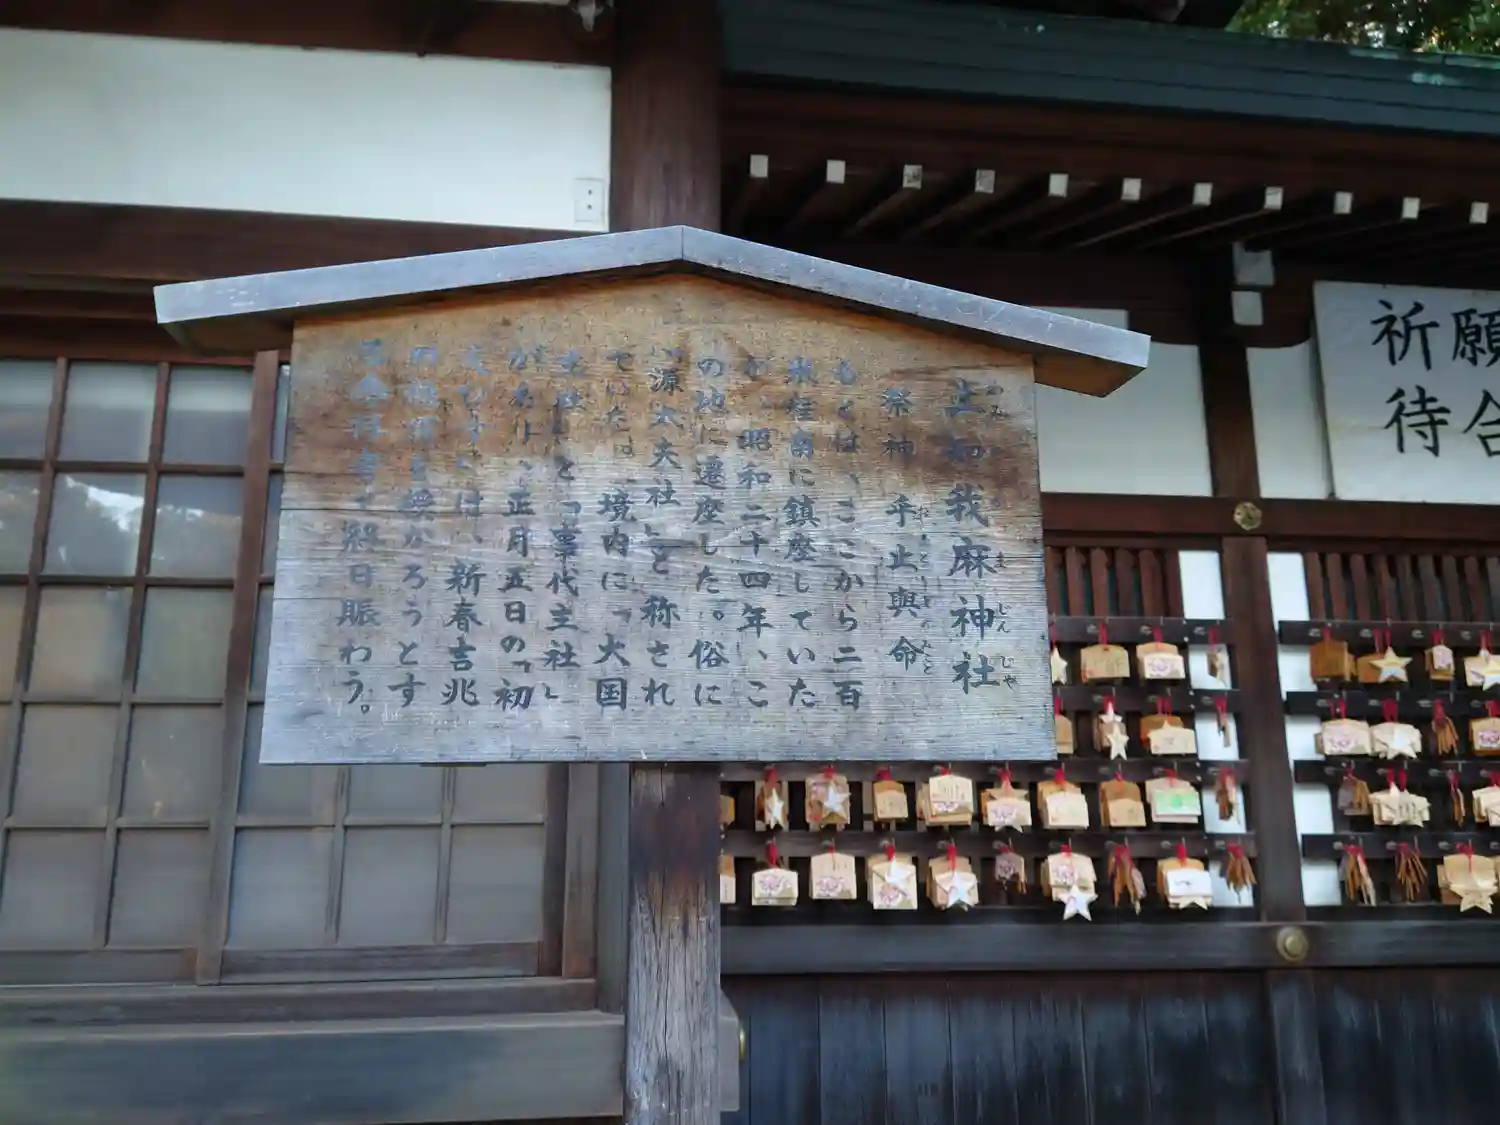 上知我麻神社
かみちかまじんじゃ
祭神 乎止與命
おとよのみこと
もとは、ここから二百
米程南に鎮座していた
が、昭和二十四年、こ
の地に遷座した。俗に
「源太夫社」と称され
ていた。境内に「大国
主社」と「事代主社」
があり、正月五日の「初
えびす」は、新春吉兆
の福運を授かろうとす
る参拝者で終日賑わう。
祈願
待合